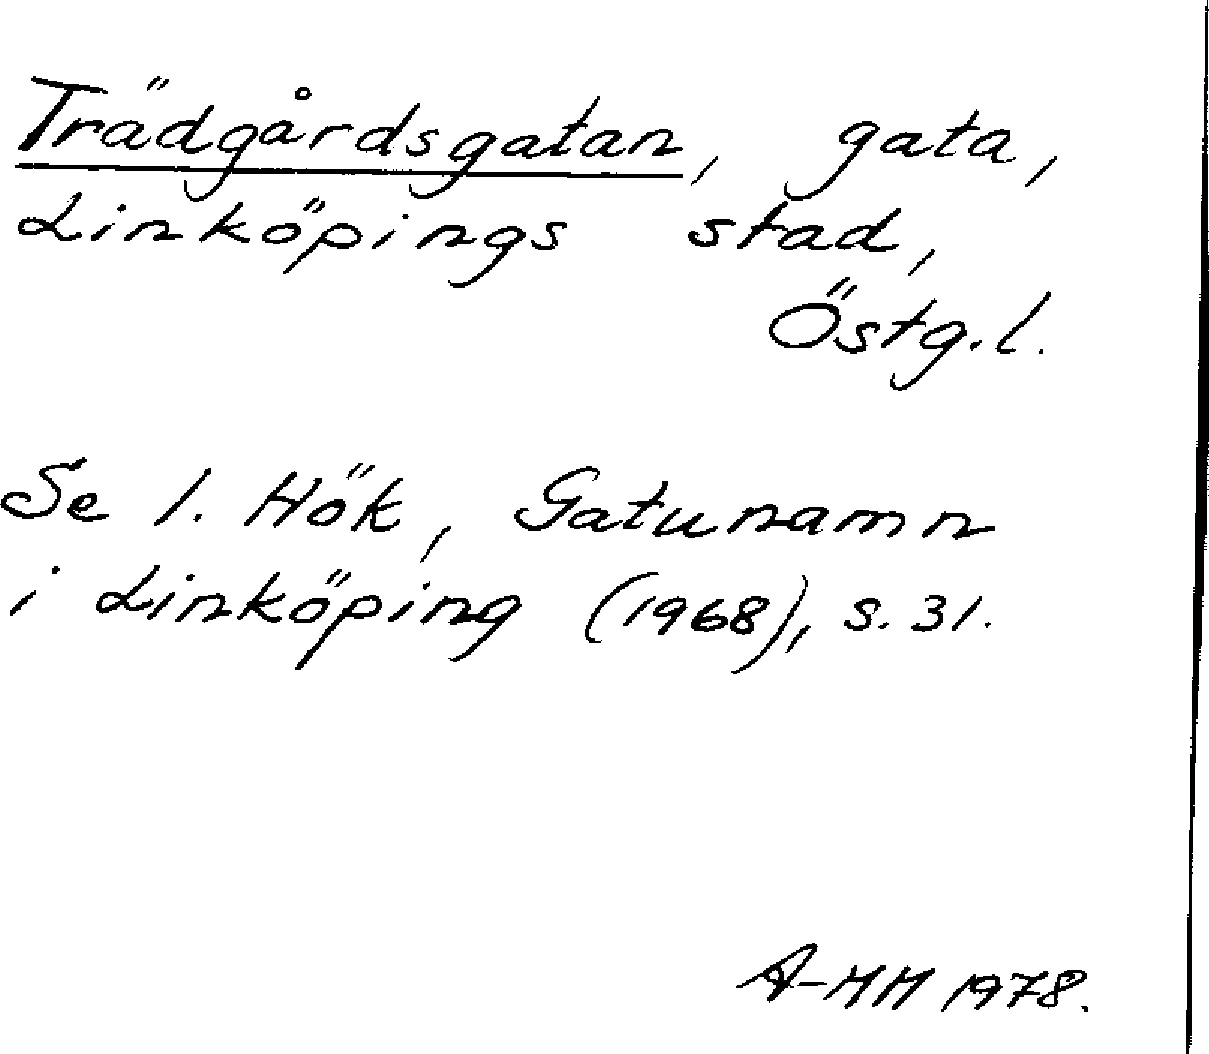 Trädgårdsgatan, gata,
Linköpings stad,
Östg.l.
Se I. Hök, Gatunamn
i Linköping (1968), s. 31.
A-MH 1978.